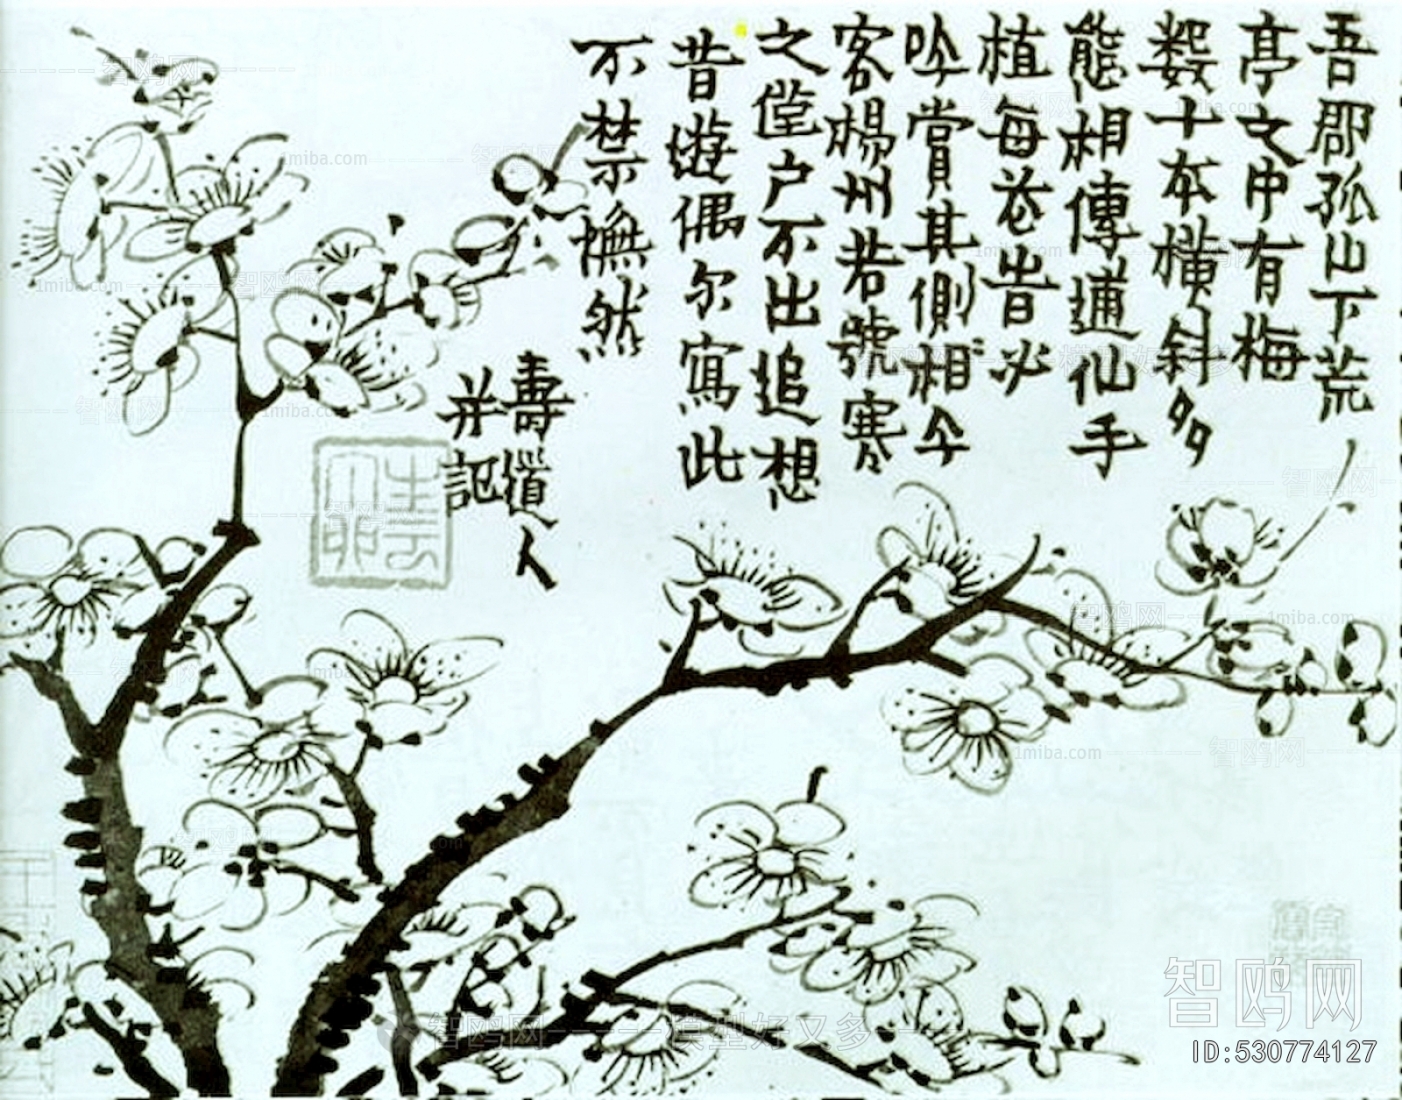 吾郡孤山下荒
亭文中有梅
數十本橫斜多
態相傳逋仙手
植每花吉必
吟賞其側相今
客楊州若號寒
之僮户不出追想
昔遊偶尔寫此
不禁憮然
壽道人
并記
智鸥网
ID:530774127